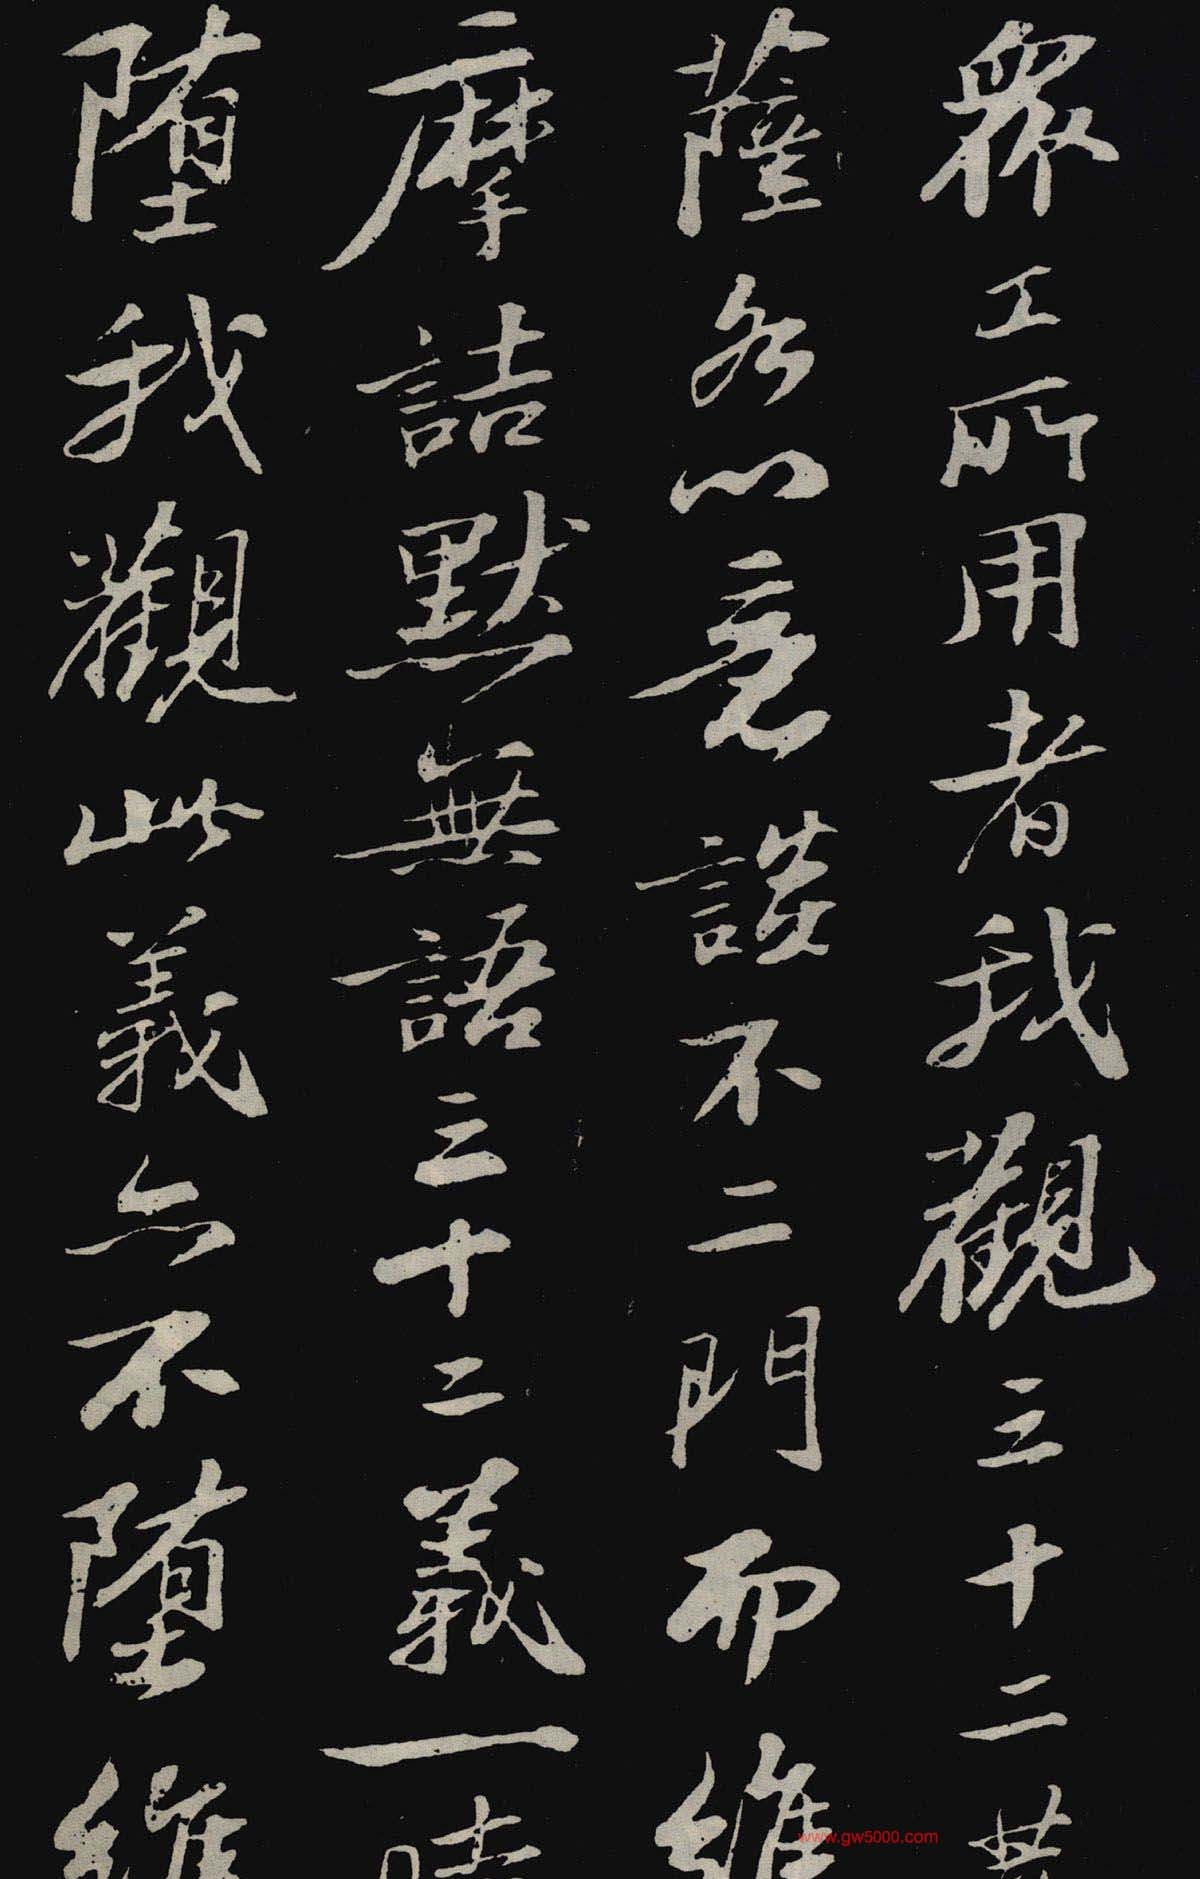 衆工所用者我觀三十二菩
薩各以意談不二門而維
摩詰默無語三十二義一時
墮我觀此義亦不墮維
www.gw5000.com